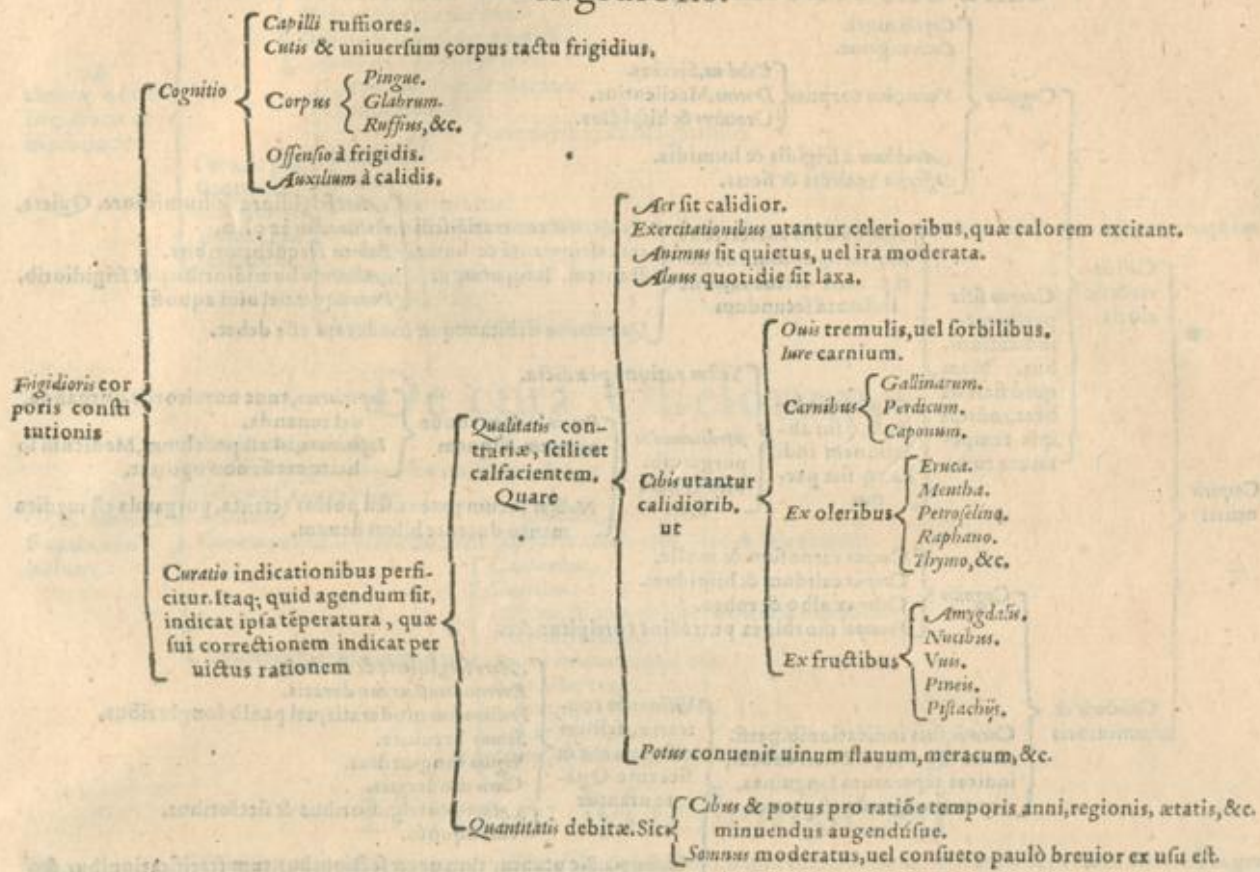 Capilli ruffiores.
Cutis & uniuersum corpus tactu frigidius.
Cognitio
Corpus
Pingue.
Glabrum.
Ruffius, &c.
Offensio à frigidis.
Auxilium à calidis.
Frigidioris cor
poris consti
tutionis
Curatio indicationibus perfi-
citur. Itaq; quid agendum sit,
indicat ipsa tẽperatura, quæ
sui correctionem indicat per
uictus rationem
Qualitatis con-
trariæ, scilicet
calfacientem.
Quare
Aer sit calidior.
Exercitationibus utantur celerioribus, quæ calorem excitant.
Animus sit quietus, uel ira moderata.
Aluus quotidie sit laxa.
Cibis utantur
calidiorib.
ut
Ouis tremulis, uel sorbilibus.
Iure carnium.
Carnibus
Gallinarum.
Perdicum.
Caponum.
Ex oleribus
Eruca.
Mentha.
Petroselino.
Raphano.
Thymo, &c.
Ex fructibus
Amygdalis.
Nucibus.
Vuis.
Pineis.
Pistachijs.
Potus conuenit uinum flauum, meracum, &c.
Quantitatis debitæ. Sic
Cibus & potus pro ratiõe temporis anni, regionis, ætatis, &c.
minuendus augendúsue.
Somnus moderatus, uel consueto paulò breuior ex usu est.